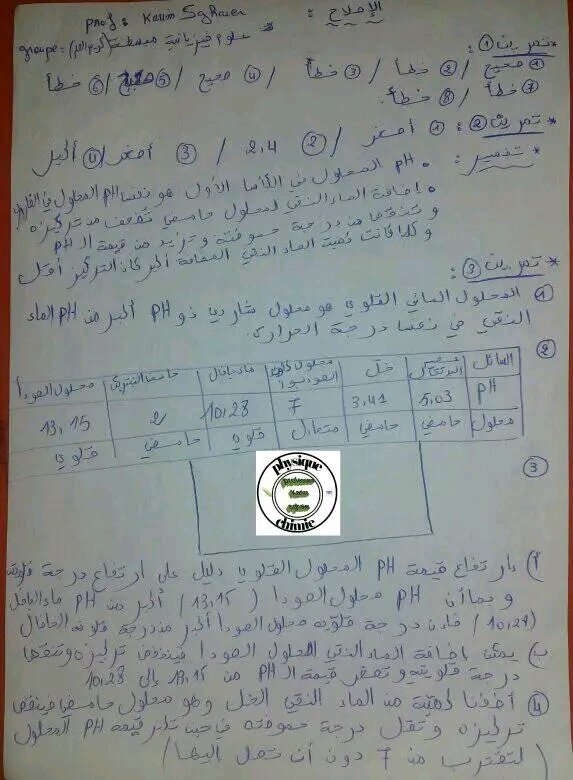 prof: Karim Sghaier
الإصلاح :
علوم فيزيائية
groupe =
* تمرين ① :
① صحيح / ② خطأ / ③ خطأ / ④ صحيح / ⑤ صحيح / ⑥ خطأ
⑦ خطأ / ⑧ خطأ.
* تمرين ② : ① أصغر / ② 2,4 / ③ أصغر / ④ أكبر
* تفسير : • pH المحلول في الكأس الأول هو نفس pH المحلول في
• إضافة الماء النقي لمحلول حامضي تخفف من تركيزه
و تنقص من درجة حموضته و تزيد من قيمة الـ pH
و كلما كانت كمية الماء النقي المضافة أكبر كان التركيز أقل
* تمرين ③ :
① المحلول المائي القلوي هو محلول شاردي ذو pH أكبر من pH الماء
النقي في نفس درجة الحرارة.
②
السائل | | خل | محلول كلورور الصوديوم | ماء جافال | حامض النتريك | محلول الصودا
pH | 5,03 | 3,41 | 7 | 10,28 | 2 | 13,15
محلول | حامضي | حامضي | متعادل | قلوي | حامضي | قلوي
③
physique
chimie
أ) إرتفاع قيمة pH المحلول القلوي دليل على ارتفاع درجة قلويته
و بما أن pH محلول الصودا (13,15) أكبر من pH ماء الجافال
(10,28) فإن درجة قلوية محلول الصودا أكبر من درجة قلوية الجافال
ب) يمكن إضافة الماء النقي لمحلول الصودا فينخفض تركيزه وتنقص
درجة قلويته و تصغر قيمة الـ pH من 13,15 إلى 10,28
④ أضفنا كمية من الماء النقي الخل وهو محلول حامضي فينقص
تركيزه و تقل درجة حموضته في حين تكبر قيمة pH المحلول
(لتقترب من 7 دون أن تصل إليها)